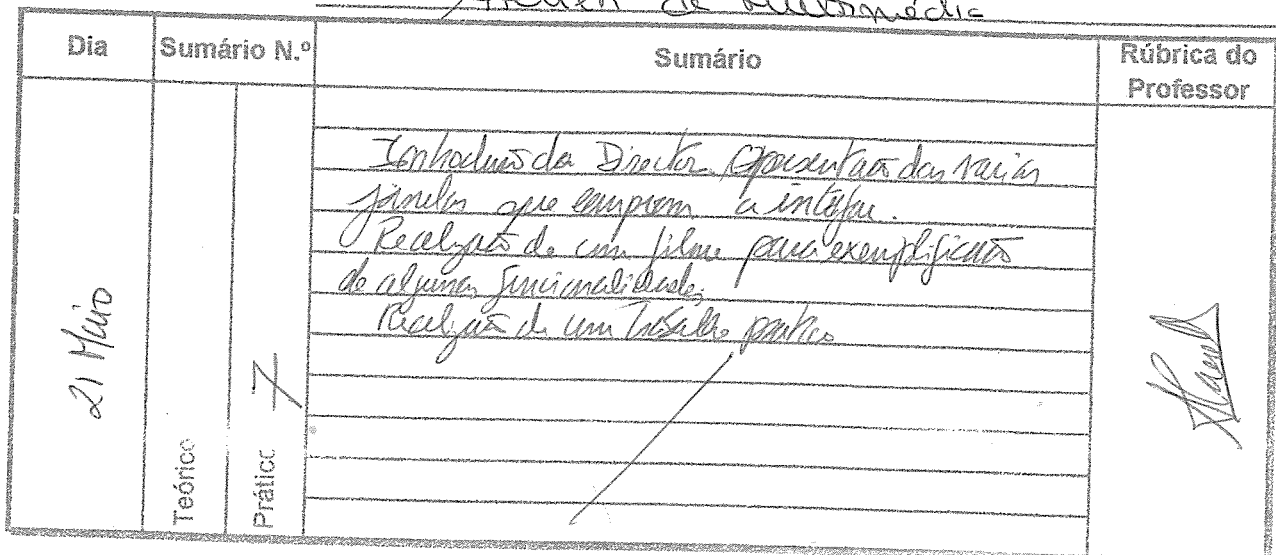 de Multimédia
Dia
Sumário N.º
Sumário
Rúbrica do
Professor
Introdução da Director. Apresentação das várias
janelas que compõem a interface.
Realização de um filme para exemplificação
de algumas funcionalidades.
Realização de um trabalho prático
21 Maio
Teórico
Prático 7